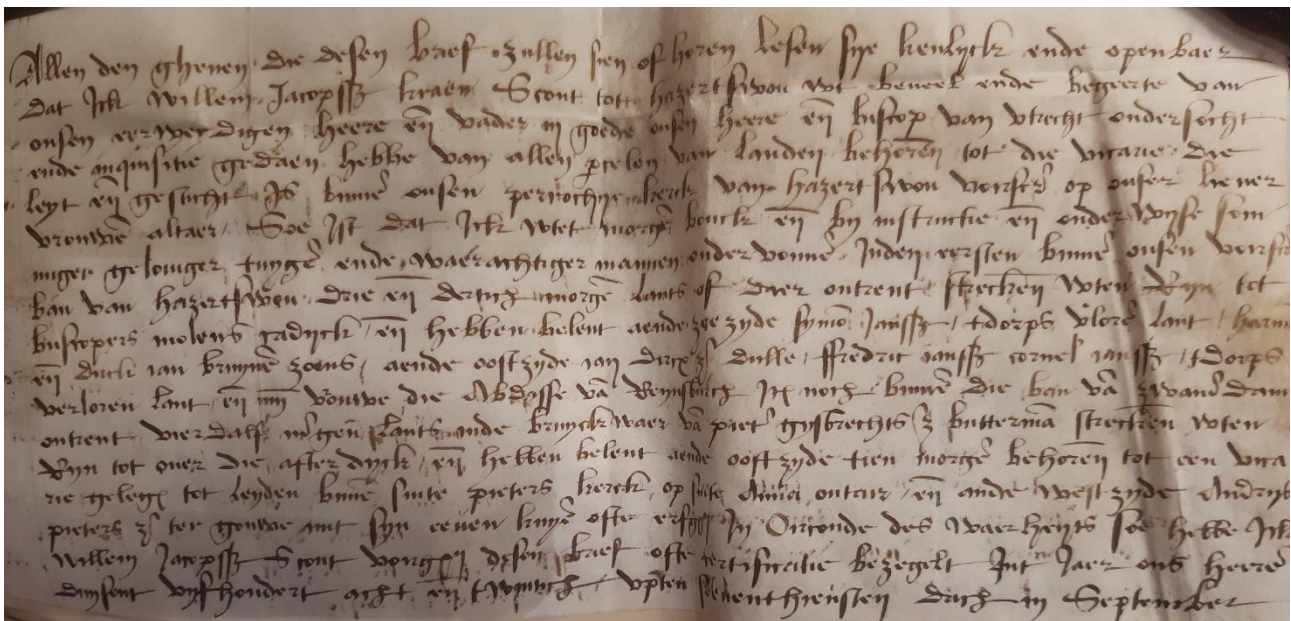 Allen den ghenen die desen brief zullen sien of horen lesen sye kenlyck ende openbaer
dat Ick Willem Jacopssz kraen Scout tot hazertswou wt beveel ende begeerte van
onsen eerwerdigen heere en̄ vader in goede onsen heere en̄ biscop van utrecht ondersocht
ende inquisitie gedaen hebbe van allen p̄celen van landen behoren̄ tot die vicarie die
leyt en̄ gesticht is binnē onsen prochye kerck van hazertswou vorscr̄ op onser liever
vrouwē altaer Soe ist dat Ick wtet morgē bouck en̄ by instructie en̄ onderwyse som
miger geloviger tuygē ende waerachtiger mannen ondervonnē Inden eersten binnē onsen vorscr̄
ban van hazertswou drie en̄ dertich morgē lants of daer ontrent strecken̄ wten Ryn tot
biscopers molens cadyck en̄ hebben belent aende zyde symō Janssz tdorps v̄lorē lant
en̄ dirck ian bruynē zoens aende oostzyde ian dircx z̄ dulle ffredric ianssz cornel̄ ianssz tdorps
verloren lant en̄ mȳ vrouwe die Abdesse vā Reynsburch Itē noch binnē die ban vā zwanēdam
ontrent vierdalf m̄gen lants inde bruyckwaer vā piet̄ gysbrechts z̄ buttermā strecken̄ wten
Ryn tot over die afterdyck en̄ hebben belent aende oostzyde tien morgē behoren̄ tot een vica
rie gelegē tot leyden binnē sinte pieters kerck op sinte Anna outaer en̄ ande westzyde Andrys
pieters z̄ ter gouwe mit syn eenen ofte In Oirconde des waerheyts soe hebbe Ick
Willem Jacopssz Scout vorgen̄ desen brief ofte certificatie bezegelt Int Jaer ons heerē
duysent vyfhondert acht en̄ twintich upten seventhiensten dach in September